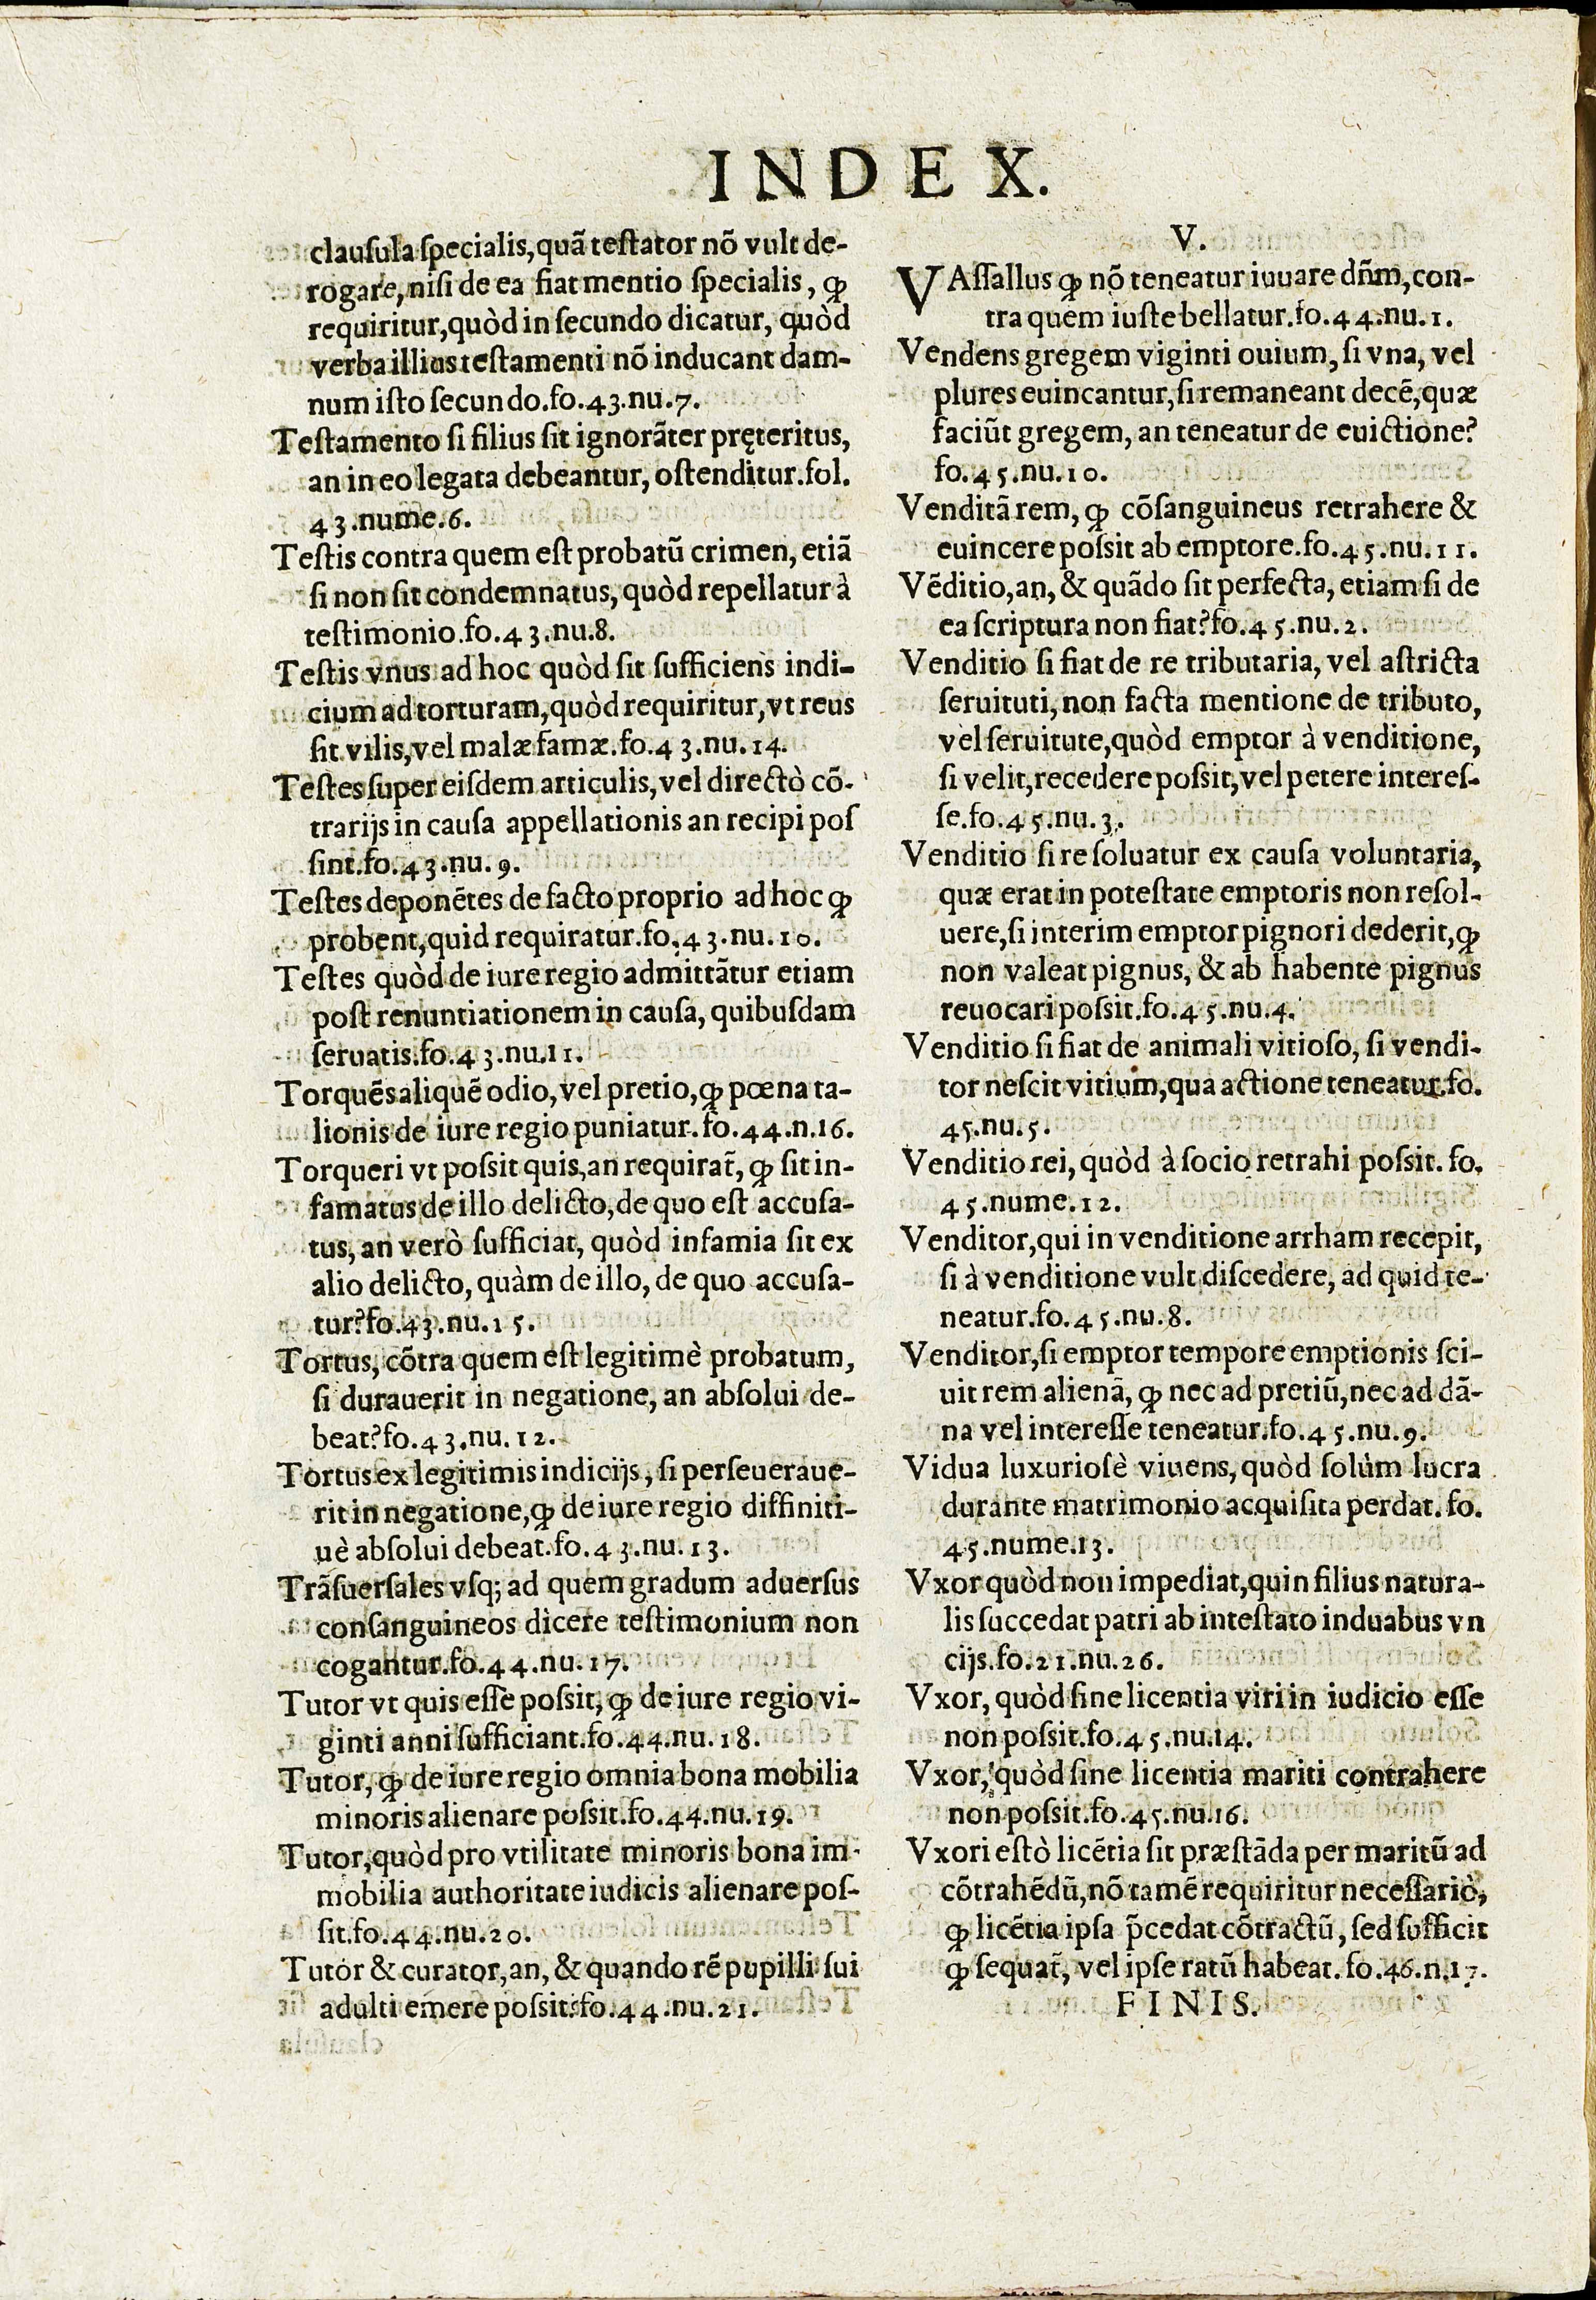 INDEX.
clauſula ſpecialis, quã teſtator nõ vult de-
rogare, niſi de ea fiat mentio ſpecialis, ꝙ
requiritur, quòd in ſecundo dicatur, quòd
verba illius teſtamenti nõ inducant dam-
num iſto ſecundo. fo. 43. nu. 7.
Teſtamento ſi filius ſit ignorãter pręteritus,
an in eo legata debeantur, oſtenditur. fol.
43. nume. 6.
Teſtis contra quem eſt probatũ crimen, etiã
ſi non ſit condemnatus, quòd repellatur à
teſtimonio. fo. 43. nu. 8.
Teſtis vnus ad hoc quòd ſit ſufficiens indi-
cium ad torturam, quòd requiritur, vt reus
ſit vilis, vel malæ famæ. fo. 43. nu. 14.
Teſtes ſuper eiſdem articulis, vel directò cõ-
trarijs in cauſa appellationis an recipi poſ
ſint. fo. 43. nu. 9.
Teſtes deponẽtes de facto proprio ad hoc ꝙ
probent, quid requiratur. fo. 43. nu. 10.
Teſtes quòd de iure regio admittãtur etiam
poſt renuntiationem in cauſa, quibuſdam
ſeruatis. fo. 43. nu. 11.
Torquẽs aliquẽ odio, vel pretio, ꝙ pœna ta-
lionis de iure regio puniatur. fo. 44. n. 16.
Torqueri vt poſsit quis, an requirat̃, ꝙ ſit in-
famatus de illo delicto, de quo eſt accuſa-
tus, an verò ſufficiat, quòd infamia ſit ex
alio delicto, quàm de illo, de quo accuſa-
tur? fo. 43. nu. 15.
Tortus, cõtra quem eſt legitimè probatum,
ſi durauerit in negatione, an abſolui de-
beat? fo. 43. nu. 12.
Tortus ex legitimis indicijs, ſi perſeueraue-
rit in negatione, ꝙ de iure regio diffiniti-
uè abſolui debeat. fo. 43. nu. 13.
Trãſuerſales vſq; ad quem gradum aduerſus
conſanguineos dicere teſtimonium non
cogantur. fo. 44. nu. 17.
Tutor vt quis eſſe poſsit, ꝙ de iure regio vi-
ginti anni ſufficiant. fo. 44. nu. 18.
Tutor, ꝙ de iure regio omnia bona mobilia
minoris alienare poſsit. fo. 44. nu. 19.
Tutor, quòd pro vtilitate minoris bona im-
mobilia authoritate iudicis alienare poſ-
ſit. fo. 44. nu. 20.
Tutor & curator, an, & quando rẽ pupilli ſui
adulti emere poſsit: fo. 44. nu. 21.
V.
VAſſallus ꝙ nõ teneatur iuuare dñm, con-
tra quem iuſte bellatur. fo. 44. nu. 1.
Vendens gregem viginti ouium, ſi vna, vel
plures euincantur, ſi remaneant decẽ, quæ
faciũt gregem, an teneatur de euictione?
fo. 45. nu. 10.
Venditã rem, ꝙ cõſanguineus retrahere &
euincere poſsit ab emptore. fo. 45. nu. 11.
Vẽditio, an, & quãdo ſit perfecta, etiam ſi de
ea ſcriptura non fiat? fo. 45. nu. 2.
Venditio ſi fiat de re tributaria, vel aſtricta
ſeruituti, non facta mentione de tributo,
vel ſeruitute, quòd emptor à venditione,
ſi velit, recedere poſsit, vel petere intereſ-
ſe. fo. 45. nu. 3.
Venditio ſi reſoluatur ex cauſa voluntaria,
quæ erat in poteſtate emptoris non reſol-
uere, ſi interim emptor pignori dederit, ꝙ
non valeat pignus, & ab habente pignus
reuocari poſsit. fo. 45. nu. 4.
Venditio ſi fiat de animali vitioſo, ſi vendi-
tor neſcit vitium, qua actione teneatur. fo.
45. nu. 5.
Venditio rei, quòd à ſocio retrahi poſsit. fo.
45. nume. 12.
Venditor, qui in venditione arrham recepit,
ſi à venditione vult diſcedere, ad quid te-
neatur. fo. 45. nu. 8.
Venditor, ſi emptor tempore emptionis ſci-
uit rem alienã, ꝙ nec ad pretiũ, nec ad dã-
na vel intereſſe teneatur. fo. 45. nu. 9.
Vidua luxurioſè viuens, quòd ſolùm lucra
durante matrimonio acquiſita perdat. fo.
45. nume. 13.
Vxor quòd non impediat, quin filius natura-
lis ſuccedat patri ab inteſtato in duabus vn
cijs. fo. 21. nu. 26.
Vxor, quòd ſine licentia viri in iudicio eſſe
non poſsit. fo. 45. nu. 14.
Vxor, quòd ſine licentia mariti contrahere
non poſsit. fo. 45. nu. 16.
Vxori eſtò licẽtia ſit præſtãda per maritũ ad
cõtrahẽdũ, nõ tamẽ requiritur neceſſariò,
ꝙ licẽtia ipſa p̃cedat cõtractũ, ſed ſufficit
ꝙ ſequat̃, vel ipſe ratũ habeat. fo. 46. n. 17.
FINIS.